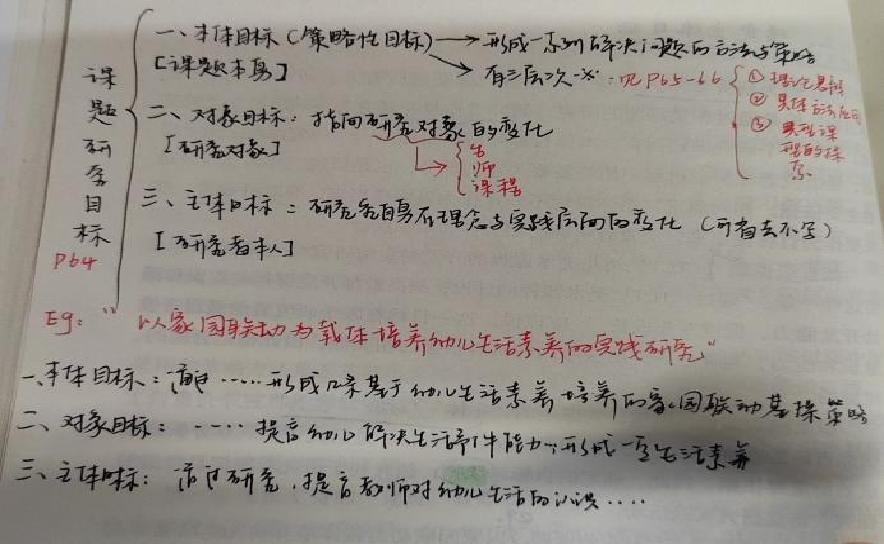 课题研究目标
P64
一、本体目标（策略性目标）→形成一系列解决问题的方法与策略
[课题本身]
→有三层次※：见P65-66
① 理论思辨
② 具体方法应用
③ 典型课
程的探
索
二、对象目标：指向研究对象的变化
[研究对象]
生
师
课程
三、主体目标：研究者自身在理念与实践层面的变化（可省去不写）
[研究者本人]
Eg："以家园联动为载体培养幼儿生活素养的实践研究"
一、本体目标：通过……形成口条基于幼儿生活素养培养的家园联动基操策略
二、对象目标：……提高幼儿解决生活事件能力…形成一定生活素养
三、主体目标：通过研究，提高教师对幼儿生活的认识……